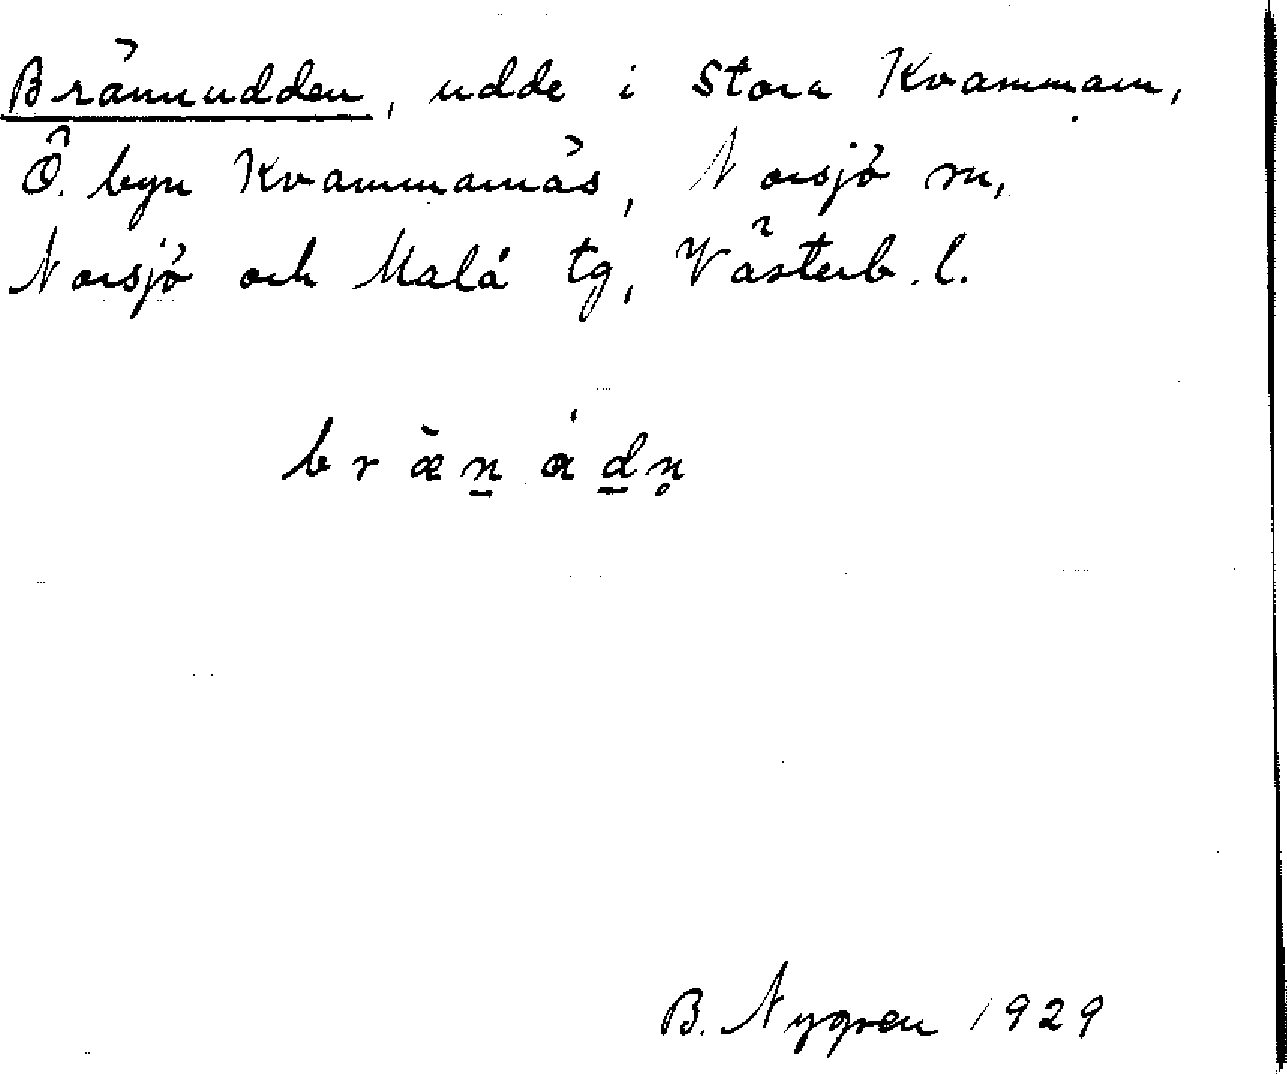 Brännudden, udde i Stora Kvamman,
Ö. byn Kvammarnäs, Norsjö sn,
Norsjö och Malå tg, Västerb. l.
bræ̀n̲ ȧd̲n̥
B. Nygren 1929